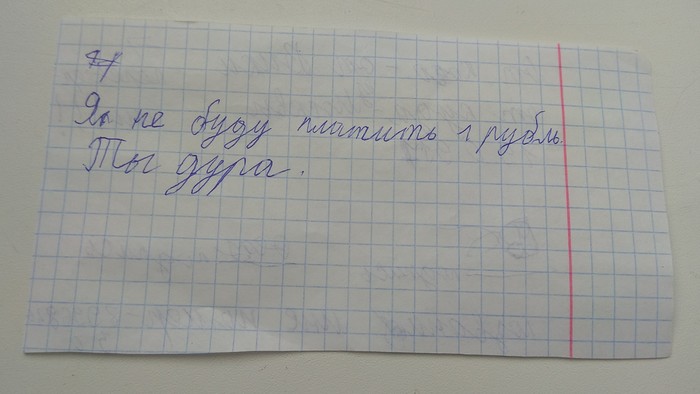 Я не буду платить 1 рубль.
Ты дура.